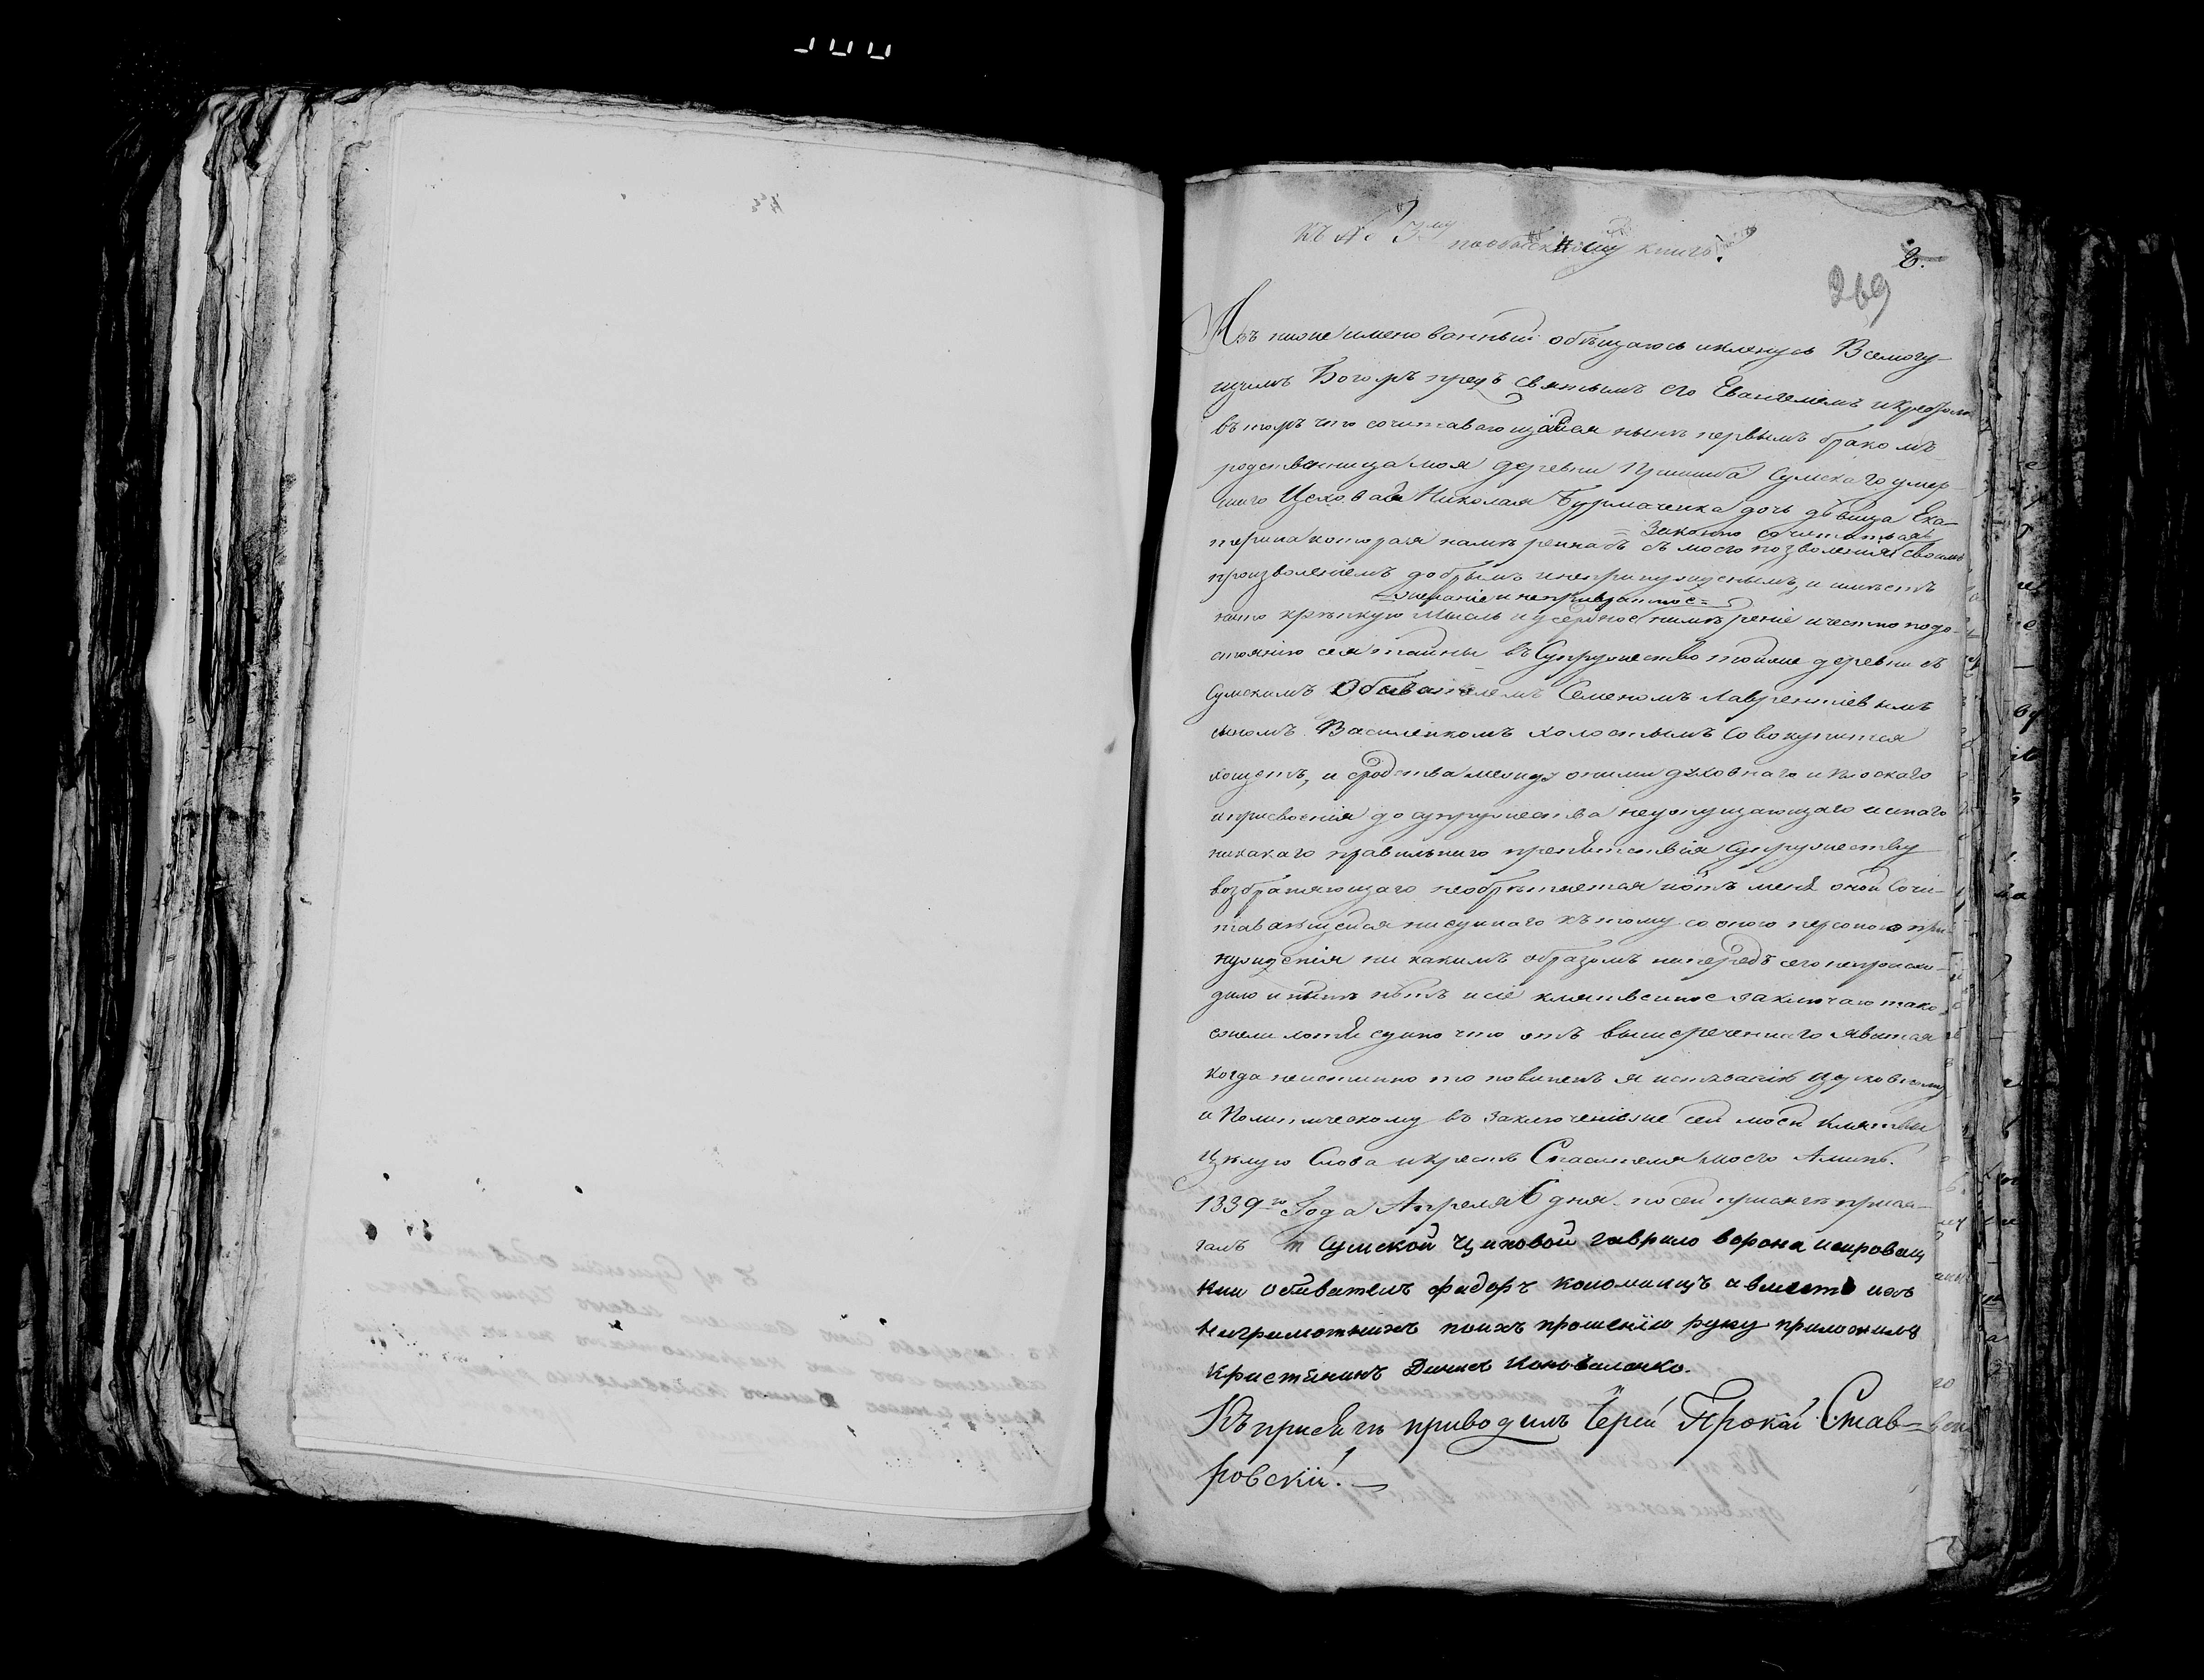 къ № 3му по обыскному книгѣ
8.
269
Азъ нижеименованный обѣщаюсь и кленусь Всемогу-
щимъ Богомъ предъ святымъ его Евангелiемъ и крестомъ
въ томъ что сочитавающаяся нынѣ первымъ бракомъ
родственница моя деревни Сумскаго умер-
шаго Цеховаго Николая Бурмаченка дочь дѣвица Ека-
= законно сочитатися
терина которая намѣренна съ моего позволенiя своимъ
произволенiемъ добрымъ и непринужденнымъ, и имѣетъ
= желанiе и непревратное =
на то крѣпкую мысль и усердное намѣренiе и честно подо-
стоянiю сея тайны въ Супружество тойже деревни съ
Сумскимъ Обывателемъ Семеномъ Лаврентiевымъ
сыномъ Василенкомъ холостымъ совокупится
хощетъ, и сродства между оними духовнаго и плоскаго
и присвоенiя до супружества недопущающаго и инаго
никакаго правильнаго препятствiя Супружеству
возбраняющаго необрѣтается и отъ меня оной Сочи-
тавающейся ниединаго къ тому со оною персоною при-
нужденiя ни какимъ образомъ напередъ сего непроисхо-
дило и нынѣ нѣтъ и сiе клятвенное заключаю тако
ежели хотя едино что отъ вышереченнаго явится
когда неистинно то повиненъ я истязанiю духовному
и Политическому въ заключенiе же сей моей клятвы
цѣлую Слова и крестъ Спасителя моего Аминь.
1839го Года Апреля 6 дня по сей присягѣ прися-
галъ Сумской Цеховой гаврило ворона
кии обиватель федоръ коломиицъ авместо ихъ
неграмотнихъ поихъ прошенiю руку приложилъ
кристянинъ Денисъ Коноваленко.
Къ присягѣ приводилъ Iерей Став=
ровскiй. —